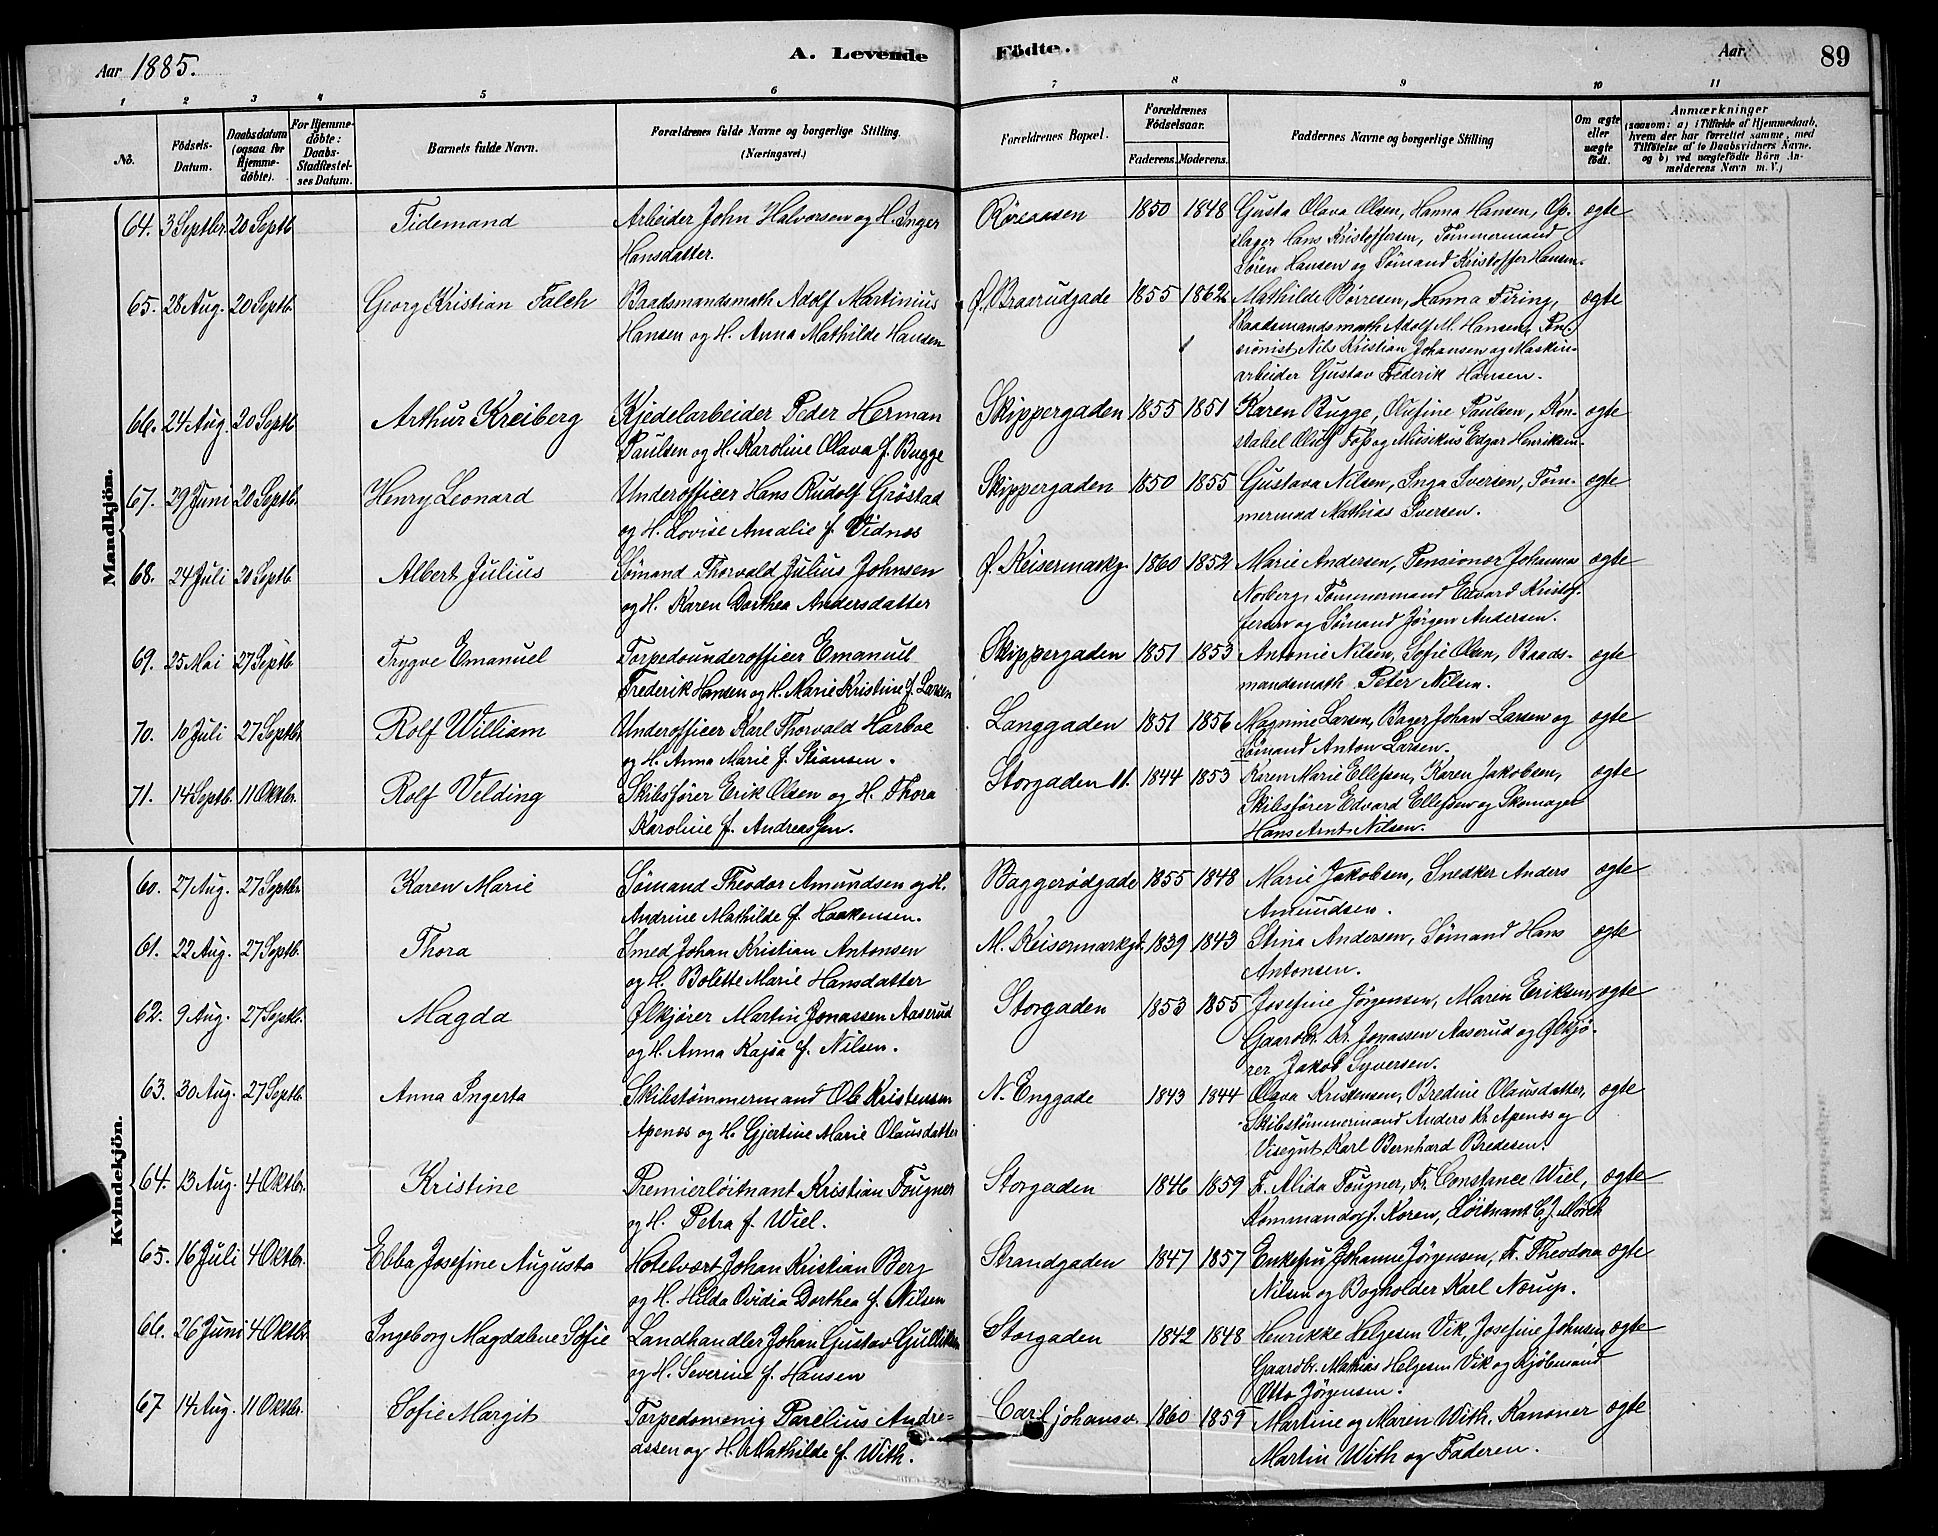 Aar 1885.
A. Levende Födte.
Aar.
89
1 2 3 4 5 6 7 8 9 10 11
No.
Födsels-Datum.
Daabsdatum (ogsaa for Hjemmedöbte).
For Hjemmedöbte: Daabs-Stadfæstelses Datum.
Barnets fulde Navn.
Forældrenes fulde Navne og borgerlige Stilling. (Næringsvei.)
Forældrenes Bopæl.
Forældrenes Födselsaar.
Faderens. Moderens.
Faddernes Navne og borgerlige Stilling
Om ægte eller uægte født.
Anmærkninger
(saasom: a) i Tilfælde af Hjemmedaab, hvem der har forrettet samme, med Tilföielse af to Daabsvidners Navne, og b) ved uægtefödte Börn Anmelderens Navn m. V.)
Mandkjön.
64. 3 Septbr. 20 Septb. Tidemand Arbeider John Halvorsen og H. Inger Hansdatter. 1850 1848 Gusta Olava Olsen, Hanna Hansen, Opslager Hans Kristoffersen, Tømmermand Søren Hansen og Sømand Kristoffer Hansen. ægte
65. 28 Aug. 20 Septb. Georg Kristian Falch Baadsmandsmath Adolf Martinius Hansen og H. Anna Mathilde Hansen Ø. Braarudgade 1855 1862 Mathilde Børresen, Hanna Firing, Baadsmandsmath Adolf M. Hansen, Pensionist Nils Kristian Johansen og Maskinarbeider Gustav Frederik Hansen. ægte
66. 24 Aug. 20 Septb. Arthur Kreiberg Kjedelarbeider Peder Herman Paulsen og H. Karoline Olava f. Bugge Skippergaden 1855 1851 Karen Bugge, Olufine Paulsen, Konstabel Oluf Foss og Musikus Edgar Henriksen. ægte
67. 29 Juni 20 Septbr. Henry Leonard Underofficer Hans Rudolf Grøstad og H. Lovise Amalie f. Vidnes Skippergaden 1850 1855 Gustava Nilsen, Inga Iversen, Tømmermad Mathias Iversen. ægte
68. 24 Juli 20 Septb. Albert Julius Sømand Thorvald Julius Johnsen og H. Karen Dorthea Andersdatter Ø. Keisermarkg. 1860 1852 Marie Andersen, Pensioner Johannes Norberg, Tømmermand Edvard Kristoffersen og Sømand Jørgen Andersen. ægte
69. 25 Mai 27 Septb. Trygve Emanuel Torpedounderofficer Emanuel Frederik Hansen og H. Marie Kristine f. Larsen Skippergaden 1851 1853 Antonie Nilsen, Sofie Olsen, Baadsmandsmath Peter Nilsen. ægte
70. 10 Juli 27 Septbr. Rolf William Underofficer Karl Thorvald Harboe og H. Anna Marie f. Stiansen. Langgaden 1851 1856 Magnine Larsen, Bager Johan Larsen og Sømand Anton Larsen. ægte
71. 14 Septb. 11 Oktbr. Rolf Velding Skibsfører Erik Olsen og H. Thora Karoline f. Andreassen. Storgaden 11. 1844 1853 Karen Marie Ellefsen, Karen Jakobsen, Skibsfører Edvard Ellefsen og Skomager Hans Arnt Nilsen. ægte
Kvindekjön.
60. 27 Aug. 27 Septbr. Karen Marie Sømand Theodor Amundsen og H. Andrine Mathilde f. Haakensen. Baggerødgade 1855 1848 Marie Jakobsen, Snedker Anders Amundsen. ægte
61. 22 Aug. 27 Septb. Thora Smed Johan Kristian Antonsen og H. Bolette Marie Hansdatter M. Keisermarkgt. 1839 1843 Stina Andersen, Sømand Hans Antonsen. ægte
62. 9 Aug. 27 Septb. Magda Ølkjører Martin Jonassen Aaserud og H. Anna Kajsa f. Nilsen. Storgaden 1853 1855 Josefine Jørgensen, Maren Eriksen, Gaardbr. Kr. Jonassen Aaserud og Ølkjører Jakob Syversen. ægte
63. 30 Aug. 27 Septb. Anna Ingerta Skibstømmermand Ole Kristensen Apenæs og H. Gjertine Marie Olausdatter N. Enggade 1843 1844 Olava Kristensen, Bredine Olausdatter, Skibstømmermand Anders Kr. Apenæs og Visegut Karl Bernhard Bredesen. ægte
64. 13 Aug. 4 Oktbr. Kristine Premierløitnant Kristian Fougner og H. Petra f. Wiel. Storgaden 1846 1859 F. Alida Fougner, Fr. Constance Wiel, Kommandør J. Koren, Løitnant C. J. Mørch ægte
65. 16 Juli 4 Oktbr. Ebba Josefine Augusta Hotelvært Johan Kristian Berg og H. Hilda Ovidia Dorthea f. Nilsen Strandgaden 1847 1857 Enkefru Johanne Jørgensen, Fr. Theodora Nilsen og Bogholder Karl Nærup. ægte
66. 26 Juni 4 Oktbr. Ingeborg Magdalene Sofie Landhandler Johan Gustav Gulliksen og H. Severine f. Hansen Storgaden 1842 1848 Henrikke Helgesen Vik, Josefine Johnsen Gaardbr. Mathias Helgesen Vik og Kjøbmand Otto Jørgensen. ægte
67 14 Aug. 11 Oktbr. Sofie Margit Torpedomenig Parelius Andreassen og H. Mathilde f. With. Carljohansv. 1860 1859 Martine og Maren With, Kanoner Martin With og Faderen. ægte